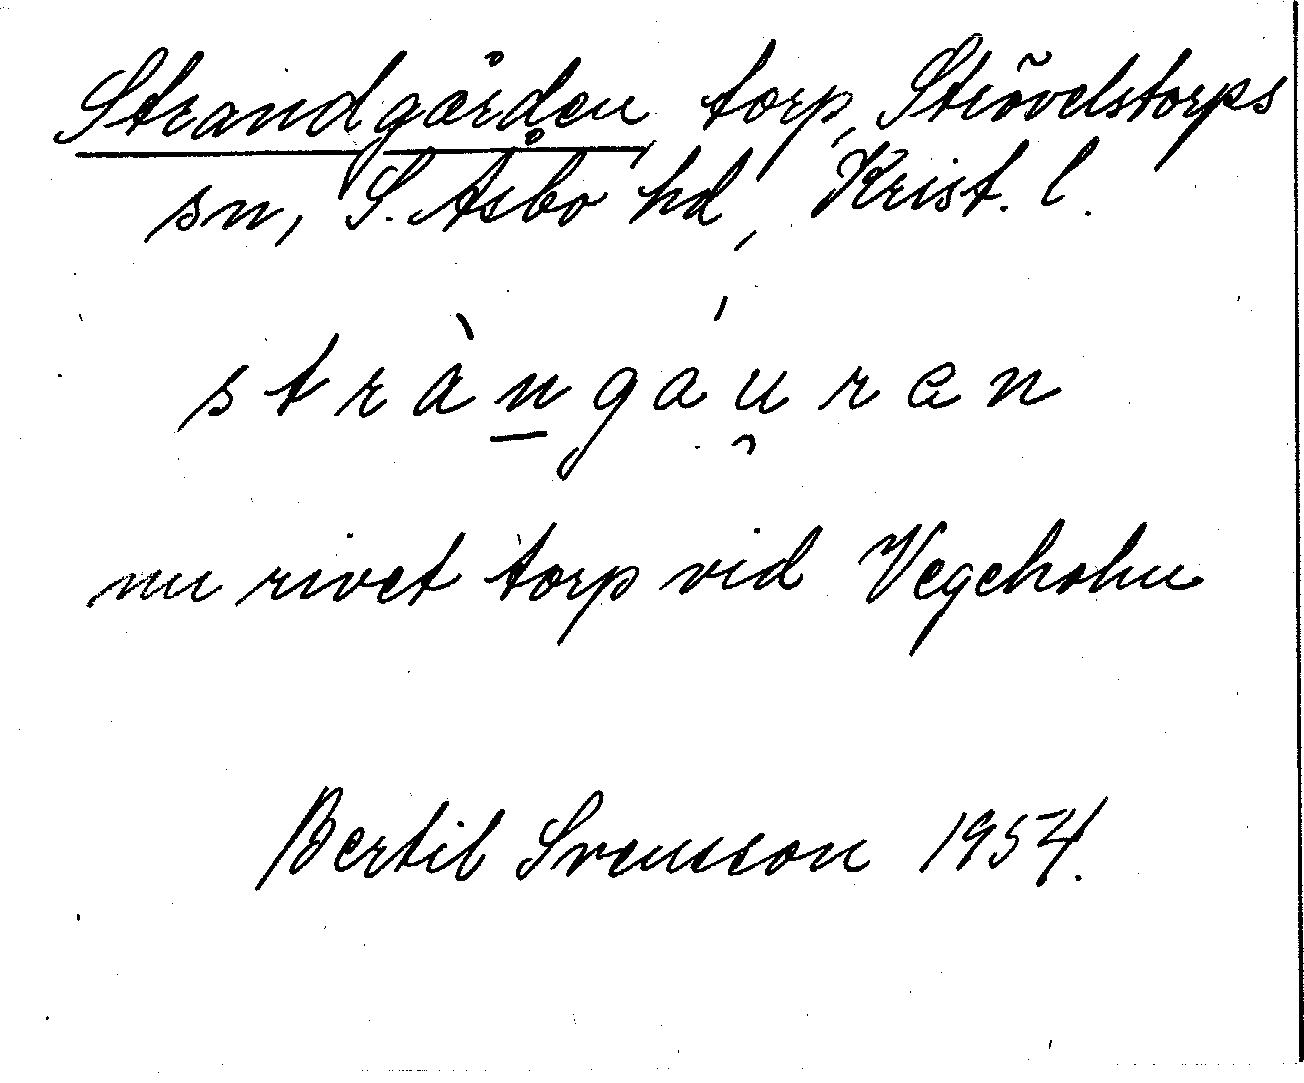 Strandgården, torp, Strövelstorps
sn, S. Åsbo hd, Krist. l.
stràn̲gáu̯ren
nu rivet torp vid Vegeholm
Bertil Svensson 1954.